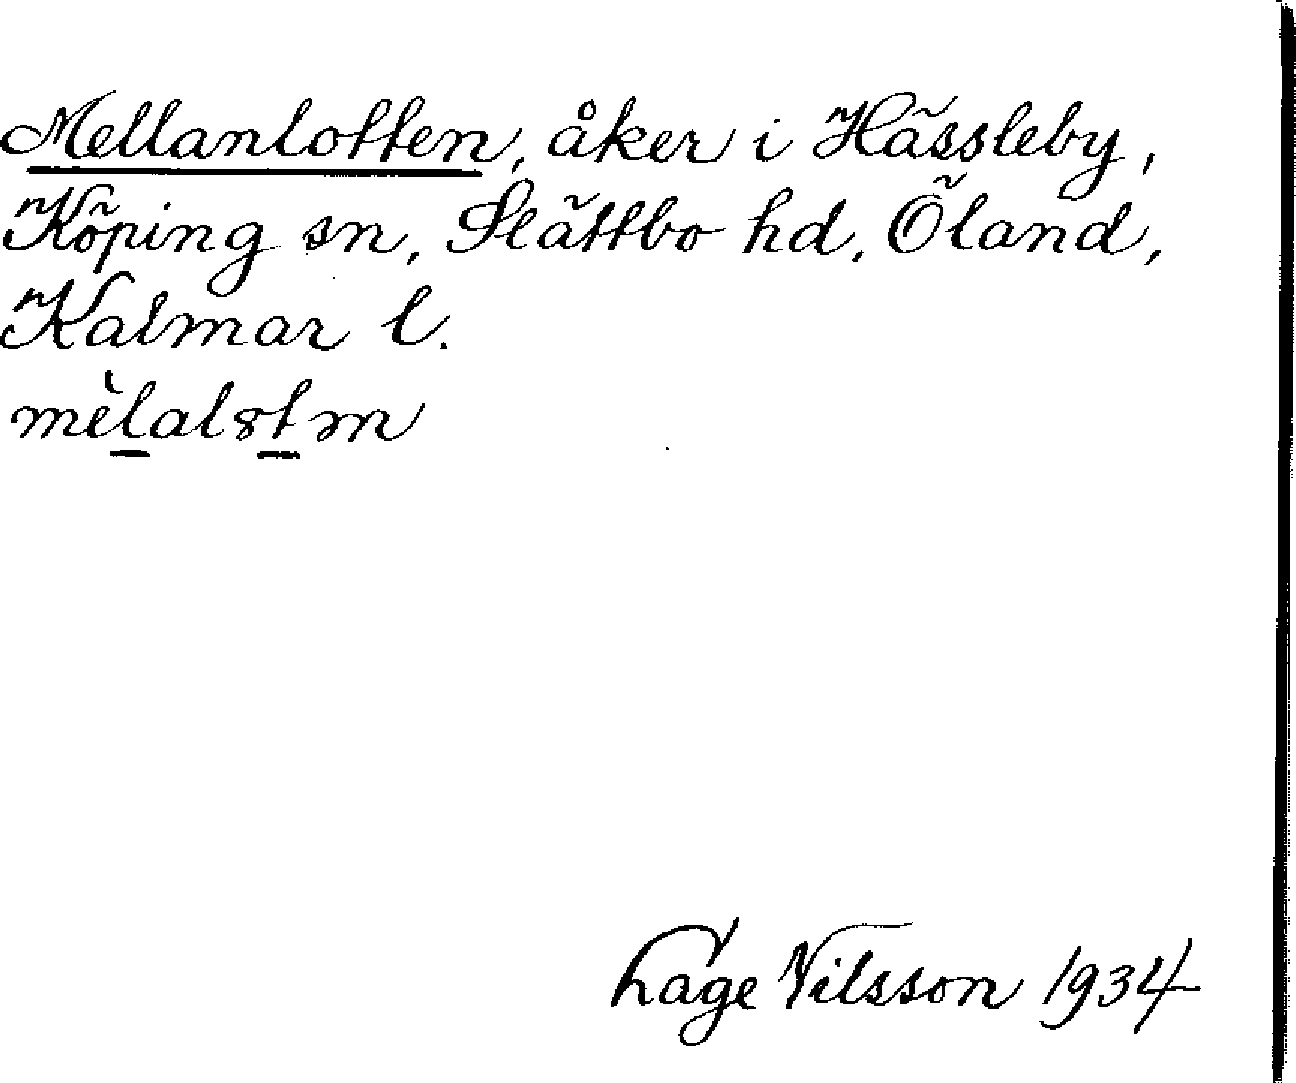 Mellanlotten, åker i Hässleby,
Köping sn, Slättbo hd, Öland,
Kalmar l.
mèlalstm
Lage Nilsson 1934